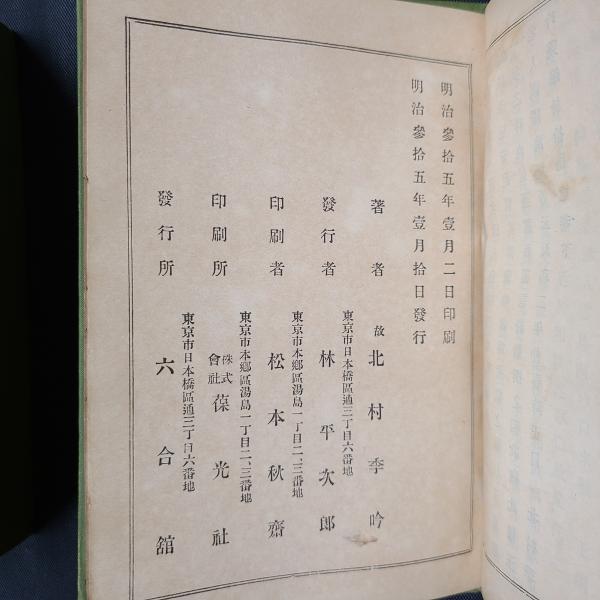 明治參拾五年壹月二日印刷
明治參拾五年壹月拾日發行
著者 故 北村季吟
東京市日本橋區通三丁目六番地
發行者 林平次郎
東京市本鄕區湯島一丁目二、三番地
印刷者 松本秋齋
東京市本鄕區湯島一丁目二、三番地
印刷所 株式會社 葆光社
東京市日本橋區通三丁目六番地
發行所 六合舘